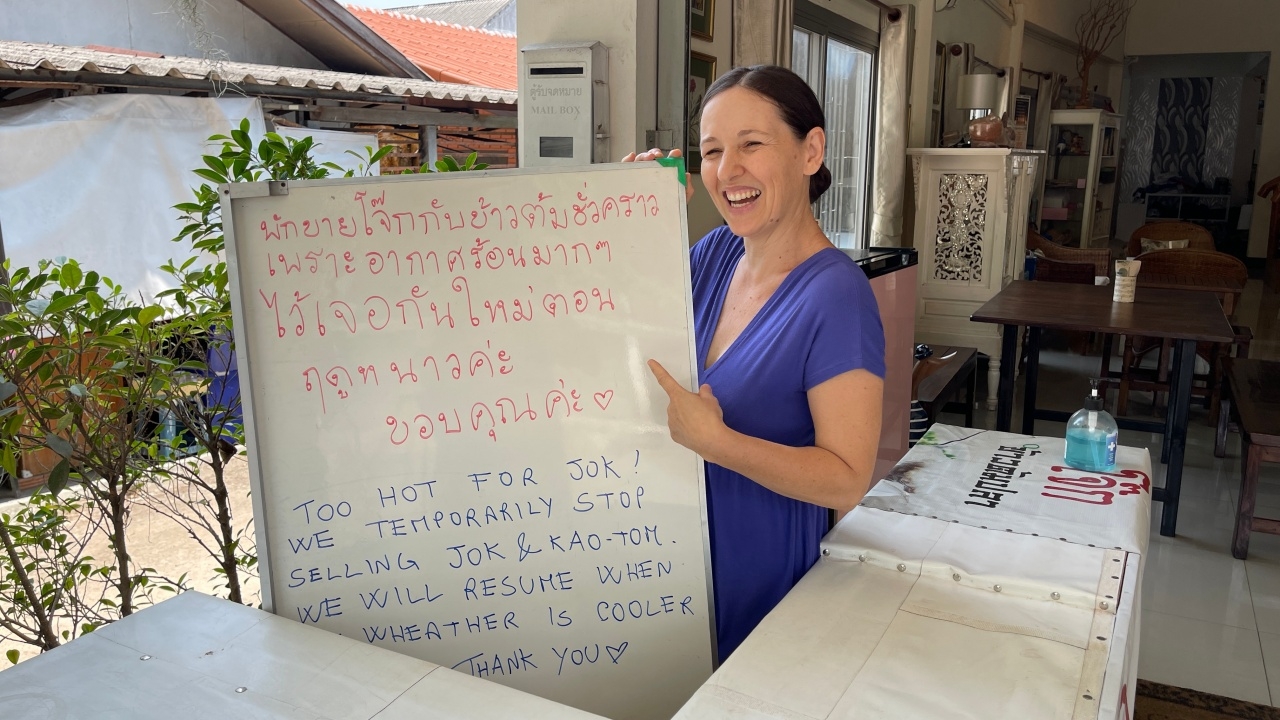 ตู้รับจดหมาย
MAIL BOX
พักขายโจ๊กกับข้าวต้มชั่วคราว
เพราะอากาศร้อนมากๆ
ไว้เจอกันใหม่ตอน
ฤดูหนาวค่ะ
ขอบคุณค่ะ ♡
TOO HOT FOR JOK !
WE TEMPORARILY STOP
SELLING JOK & KAO-TOM.
WE WILL RESUME WHEN
WHEATHER IS COOLER
THANK YOU ♡
โจ๊ก